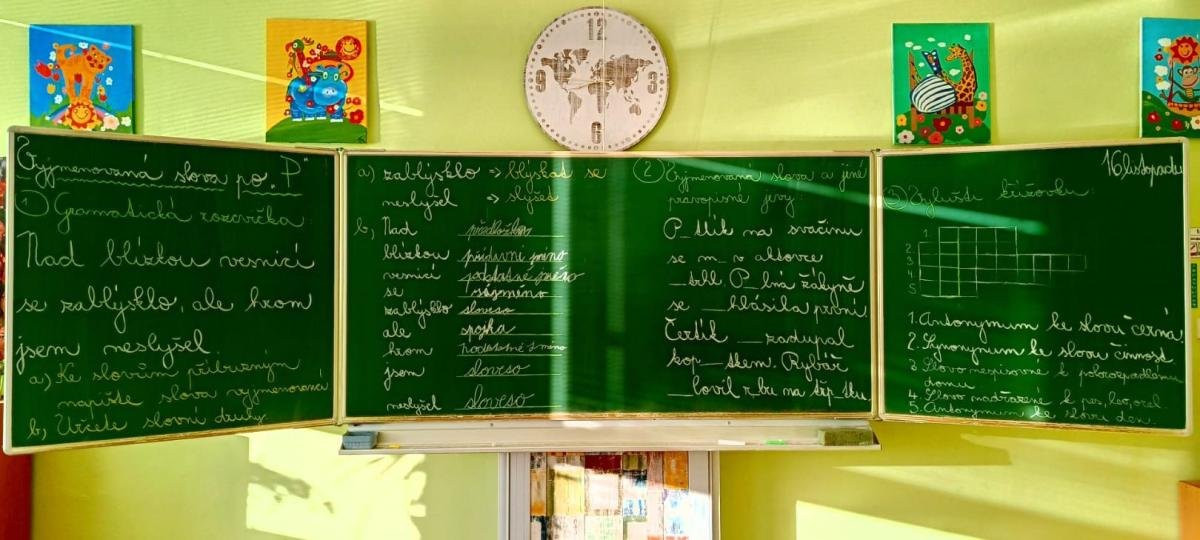 12
3
6
9
Vyjmenovaná slova po „P"
1 Gramatická rozcvička:
Nad blízkou vesnicí
se zablýsklo, ale hrom
jsem neslyšel.
a) Ke slovům příbuzným
napište slova vyjmenovaná
b) Určete slovní druhy.
a) zablýsklo → blýskat se
neslyšel → slyšet
b) Nad předložka
blízkou přídavné jméno
vesnicí podstatné jméno
se zájméno
zablýsklo sloveso
ale spojka
hrom podstatné jméno
jsem sloveso
neslyšel sloveso
2 Vyjmenovaná slova a jiné
pravopisné jevy:
P_tlík na svačinu
se m_ v aktovce
_trhl. P_lná žákyně
se __hlásila první
Čertík __ zadupal
kop__tkem. Rybář
_lovil r_bu na třp_tku
16 listopadu
3 Vylušti křížovku:
1
2
3
4
5
1. Antonymum ke slovu černá
2. Synonymum ke slovu činnost
3. Slovo nespisovné k polorozpadlému
domu
4. Slovo nadřazené k pes, kos, osel.
5. Antonymum ke slovu den.